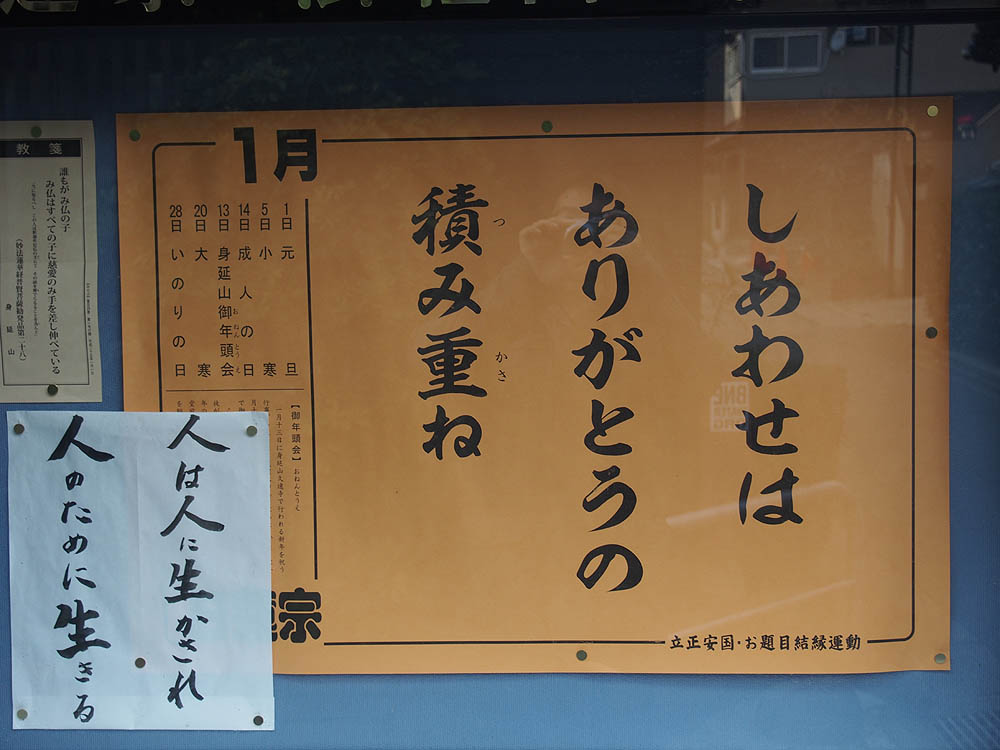 1月
しあわせは
ありがとうの
積み重ね
つ
かさ
1日元旦
5日小寒
14日成人の日
13日身延山御年頭会
おねんとうえ
20日大寒
28日いのりの日
【御年頭会】おねんとうえ
一月十三日に身延山久遠寺で行われる新年を祝う
宗
立正安国・お題目結縁運動
教箋
誰もがみ仏の子
み仏はすべての子に慈愛のみ手を差し伸べている
(妙法蓮華経普賢菩薩勧発品第二十八)
身延山
人は人に生かされ
人のために生きる